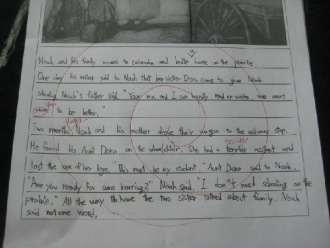 Noah and his family moved to Colorado and built home on the prairie
One day his mother said to Noah that her sister Dora come to give Noah
study. Noah's father said "Your ma and I can hardly read or write. We want
you to be better."
years
Two month, Noah and his mother drove their wagon to the railway stop.
He found his Aunt Dora on the wheelchair. She had a terrible accident and
terrible
lost the use of her legs. "This must be my student." Aunt Dora said to Noah.
"Are you ready for some learning?" Noah said, "I don't need schooling on the
prairie." All the way to home the two sister talked about family. Noah
said not one word.